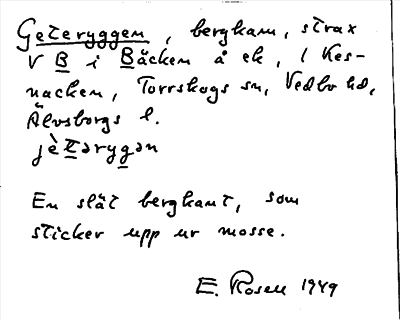 Geteryggen, bergkam, strax
V B i Bäcken å ek, 1 Kes-
nacken, Torrskogs sn, Vedbo hd,
Älvsborgs l.
jètərygən
En slät bergkant, som
sticker upp ur mosse.
E. Rosell 1949